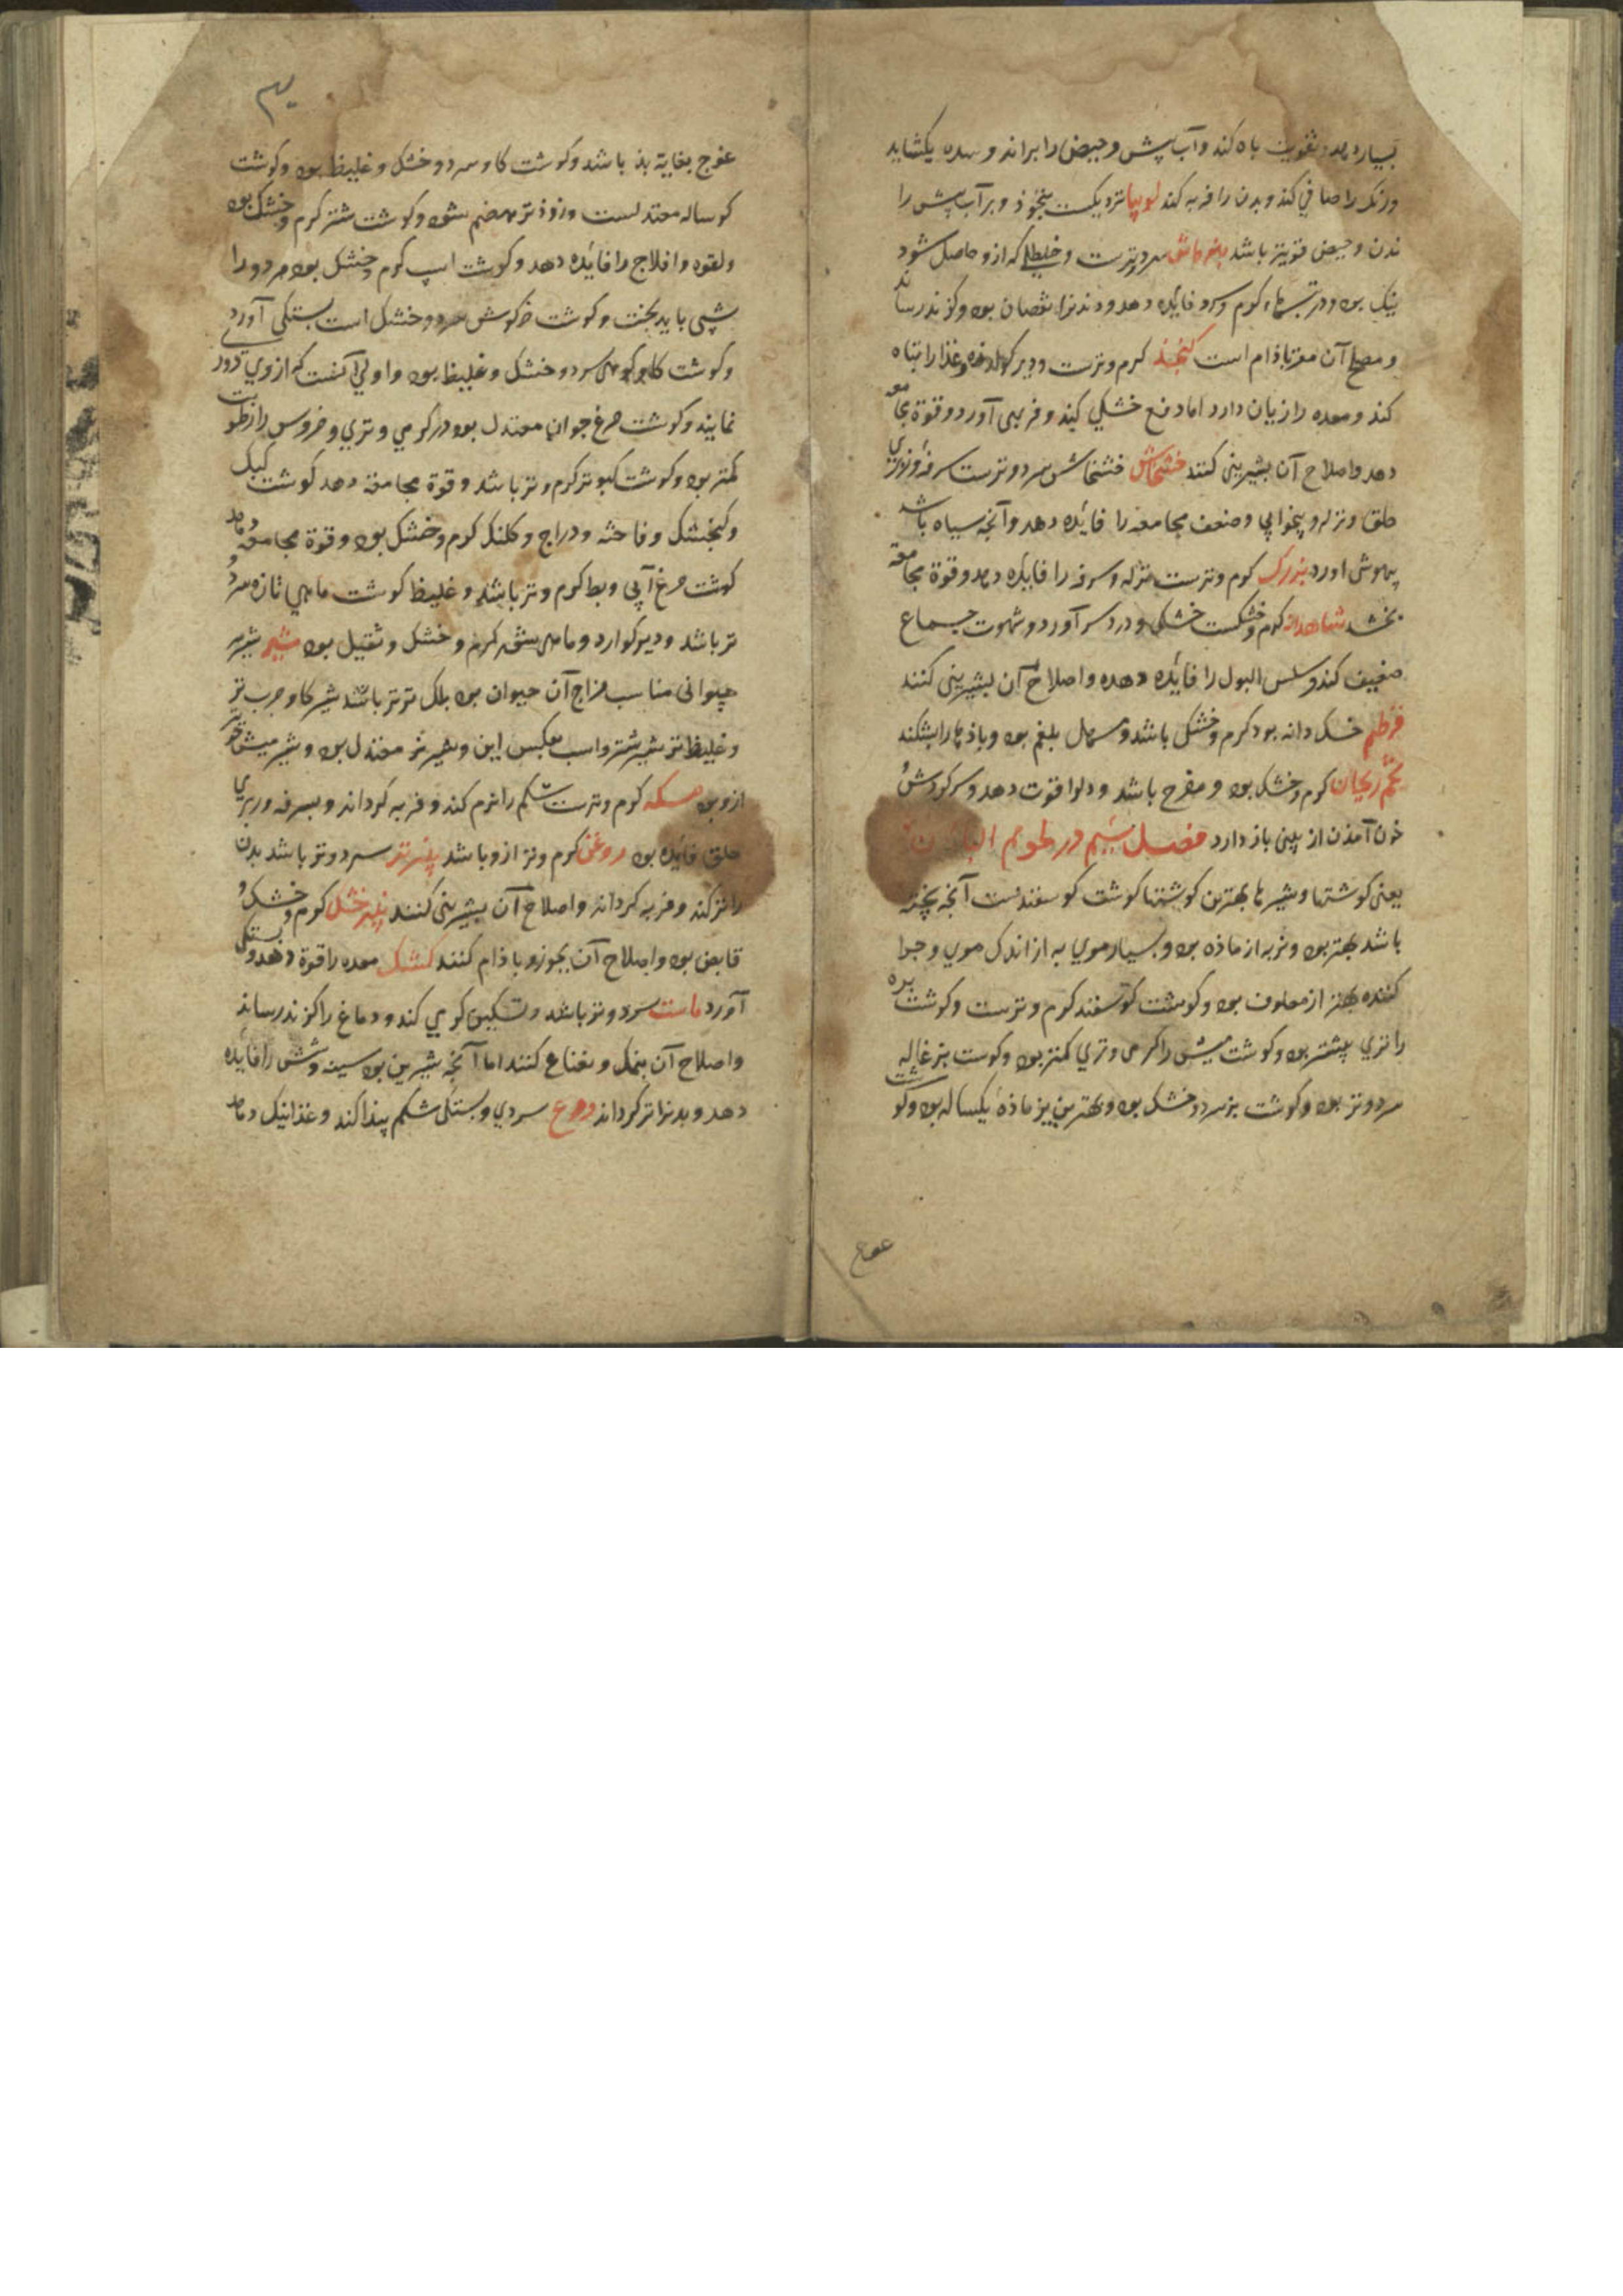 بسیار دهد و تقویت باه کند و آب پش و حیض را براند و سده بکشاید
و رنک را صافی کند و بدن را فربه کند لوبیا نزدیکست بنخوذ و بر آب پش را
ندن و حیض قویتر باشد ماش سرد و ترست و خلطی که ازو حاصل شود
نیک بوذ و در تبهاء کرم و سرد فائده دهد و دندانرا نقصان بوذ و کزند رساند
و مصلح آن مغز باذام است کنجذ کرم و ترست و دیر کوارد و غذا را تباه
کند و معده را زیان دارد اما دفع خشکی کند و فربهی آورد و قوة مجامعه
دهد و اصلاح آن بشیرینی کنند خشخاش خشخاش سرد و ترست سرفه و
حلق و نزله و بیخوابی و ضعف مجامعه را فائده دهد و آنچه سیاه باشد
بیهوشی اورد بزرک کرم و ترست نزله و سرفه را فایده دهد و قوة مجامعه
بخشد شاهدانه کرم و خشکست خشکی و درد سر آورد و شهوت جماع
ضعیف کند و سلس البول را فائده دهد و اصلاح آن بشیرینی کنند
قرطم خسک دانه بود کرم و خشک باشد و مسهل بلغم بوذ و باذها را بشکند
تخم ریحان کرم و خشک بوذ و مفرح باشد و دلرا قوت دهد و سرکردش و
خون آمذن از بینی باز دارد فصل ششم در لحوم و البان
یعنی کوشتها و شیرها بهترین کوشتها کوشت کوسفندست آنچه پخته
باشد بهتر بوذ و نر به از ماذه بوذ و بسیار موی به از اندک موی و چرا
کننده بهتر از معلوف بوذ و کوشت کوسفند کرم و ترست و کوشت بره
را تری بیشتر بوذ و کوشت میش را کرمی و تری کمتر بوذ و کوشت بزغاله
سرد و تر بوذ و کوشت بز سرد و خشک بوذ و بهترین بز ماذه یکساله بوذ و کوشت
عوج
عوج بغایة بذ باشد و کوشت کاو سرد و خشک و غلیظ بوذ و کوشت
کوساله معتدلست و زوذتر هضم شوذ و کوشت شتر کرم و خشک بوذ
و لقوه و افلاج را فائده دهد و کوشت اسپ کرم و خشک بوذ هر دو را
شبی باید پخت و کوشت خرکوش سرد و خشک است بستکی آورد
و کوشت کاو کوهی سرد و خشک و غلیظ بوذ و اولی آنست که ازوی دور
نمایند و کوشت مرغ جوان معتدل بوذ در کرمی و تری و خروس را رطوبت
کمتر بوذ و کوشت کبوتر کرم و تر باشد و قوة مجامعه دهد کوشت کبک
و کنجشک و فاخته و دراج و کلنک کرم و خشک بوذ و قوة مجامعه دهد و
کوشت مرغ آبی و بط کرم و تر باشد و غلیظ کوشت ماهی تازه سرد و
تر باشد و دیر کوارد و ماهی شور کرم و خشک و ثقیل بوذ شیر شیر هر
حیوانی مناسب مزاج آن حیوان بوذ بلک تر تر باشد شیر کاو چرب تر
و غلیظ تر شیر شتر و اسب بعکس این و شیر بز معتدل بوذ و شیر میش
ازو بوذ مسکه کرم و ترست شکم را نرم کند و فربه کرداند و بسرفه و زبری
حلق فائده بوذ روغن کرم و تر ازو باشد پنیر تر سرد و تر باشد بدن
را تر کند و فربه کرداند و اصلاح آن بشیرینی کنند پنیر خشک کرم و خشک و
قابض بوذ و اصلاح آن بجوز و باذام کنند کشک معده را قوة دهد و بستکی
آورد ماست سرد و تر باشد و تسکین کرمی کند و دماغ را کزند رساند
و اصلاح آن بنمک و نعناع کنند اما آنچه شیرین بوذ سینه و شش را فایده
دهد و بدنرا تر کرداند دوغ سردی و بستکی شکم پیذا کند و غذا نیک دهد